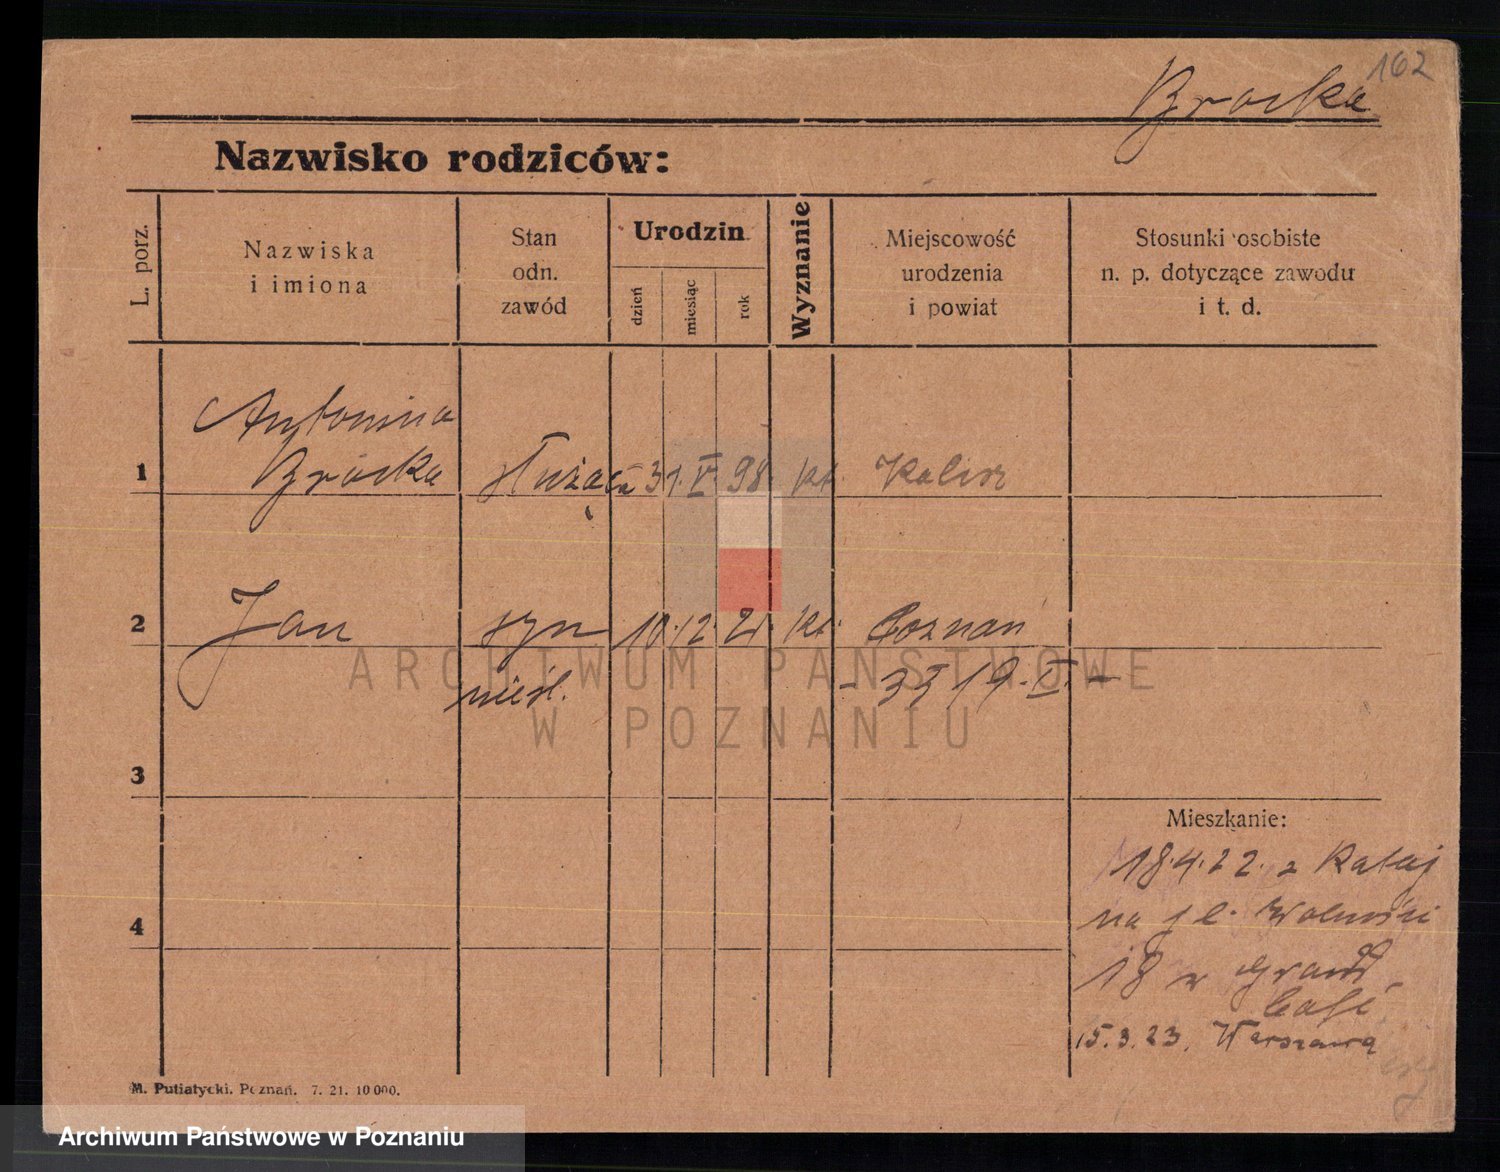 162
Brocka
Nazwisko rodziców:
L. porz.
Nazwiska
i imiona
Stan
odn.
zawód
Urodzin
dzień
miesiąc
rok
Wyznanie
Miejscowość
urodzenia
i powiat
Stosunki osobiste
n. p. dotyczące zawodu
i t. d.
Antonina
1 Brocka służąca 31. V. 98. kt. Kalisz
2 Jan syn 10. 12. 21. kt. Poznań
nieśl. - 3319. II. -
ARCHIWUM PAŃSTWOWE
W POZNANIU
3
Mieszkanie:
18.4.22. z Rataj
na pl. Wolności
4
18 w Grand
Café
15.3.23. Warszawa
M. Putiatycki. Poznań. 7. 21. 10 000.
Archiwum Państwowe w Poznaniu